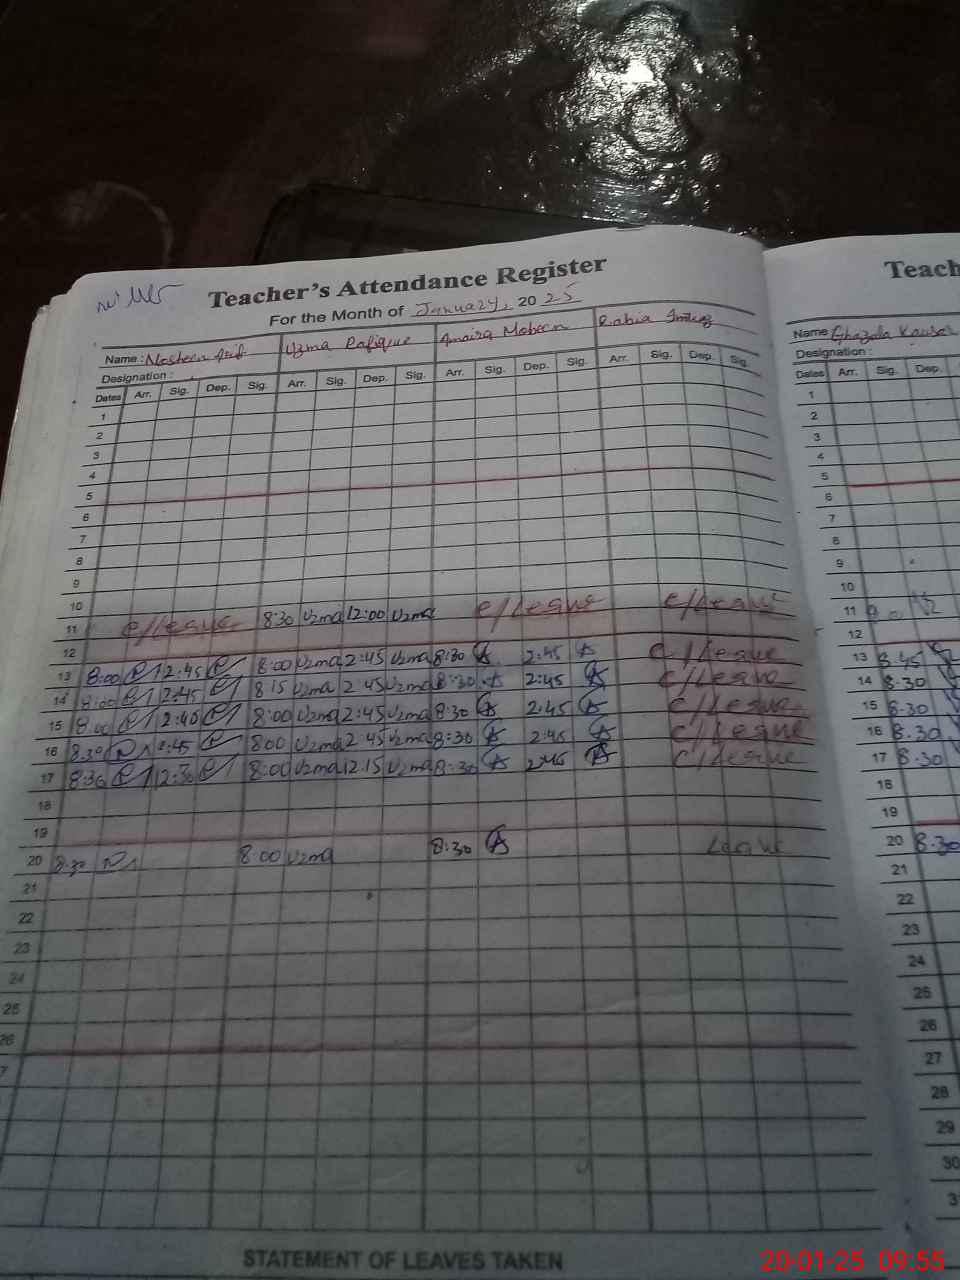 Teacher's Attendance Register
For the Month of January, 2025
Name : Nosheen Arif Uzma Rafique Amaira Mobeen Rabia
Designation :
Dates Arr. Sig. Dep. Sig. Arr. Sig. Dep. Sig. Arr. Sig. Dep. Sig. Arr. Sig. Dep. Sig.
1
2
3
4
5
6
7
8
9
10
11 c/Leave 8:30 Uzma 12:00 Uzma c/Leave c/Leave
12
13 8:00 2:45 8:00 Uzma 2:45 Uzma 8:30 2:45 c/Leave
14 8:00 2:45 8:15 Uzma 2:45 Uzma 8:30 2:45 c/Leave
15 8:00 2:40 8:00 Uzma 2:45 Uzma 8:30 2:45 c/Leave
16 8:30 2:45 8:00 Uzma 2:45 Uzma 8:30 2:45 c/Leave
17 8:30 12:30 8:00 Uzma 12:15 Uzma 8:30 2:45 c/Leave
18
19
20 8:30 8:00 Uzma 8:30 Leave
21
22
23
24
25
26
7
STATEMENT OF LEAVES TAKEN
Teach
Name Ghazala Kausar
Designation :
Dates Arr. Sig. Dep.
1
2
3
4
5
6
7
8
9
10
11
12
13 8:45
14 8:30
15 8:30
16 8:30
17 8:30
18
19
20 8:30
21
22
23
24
25
26
27
28
29
30
3
20-01-25 09:55